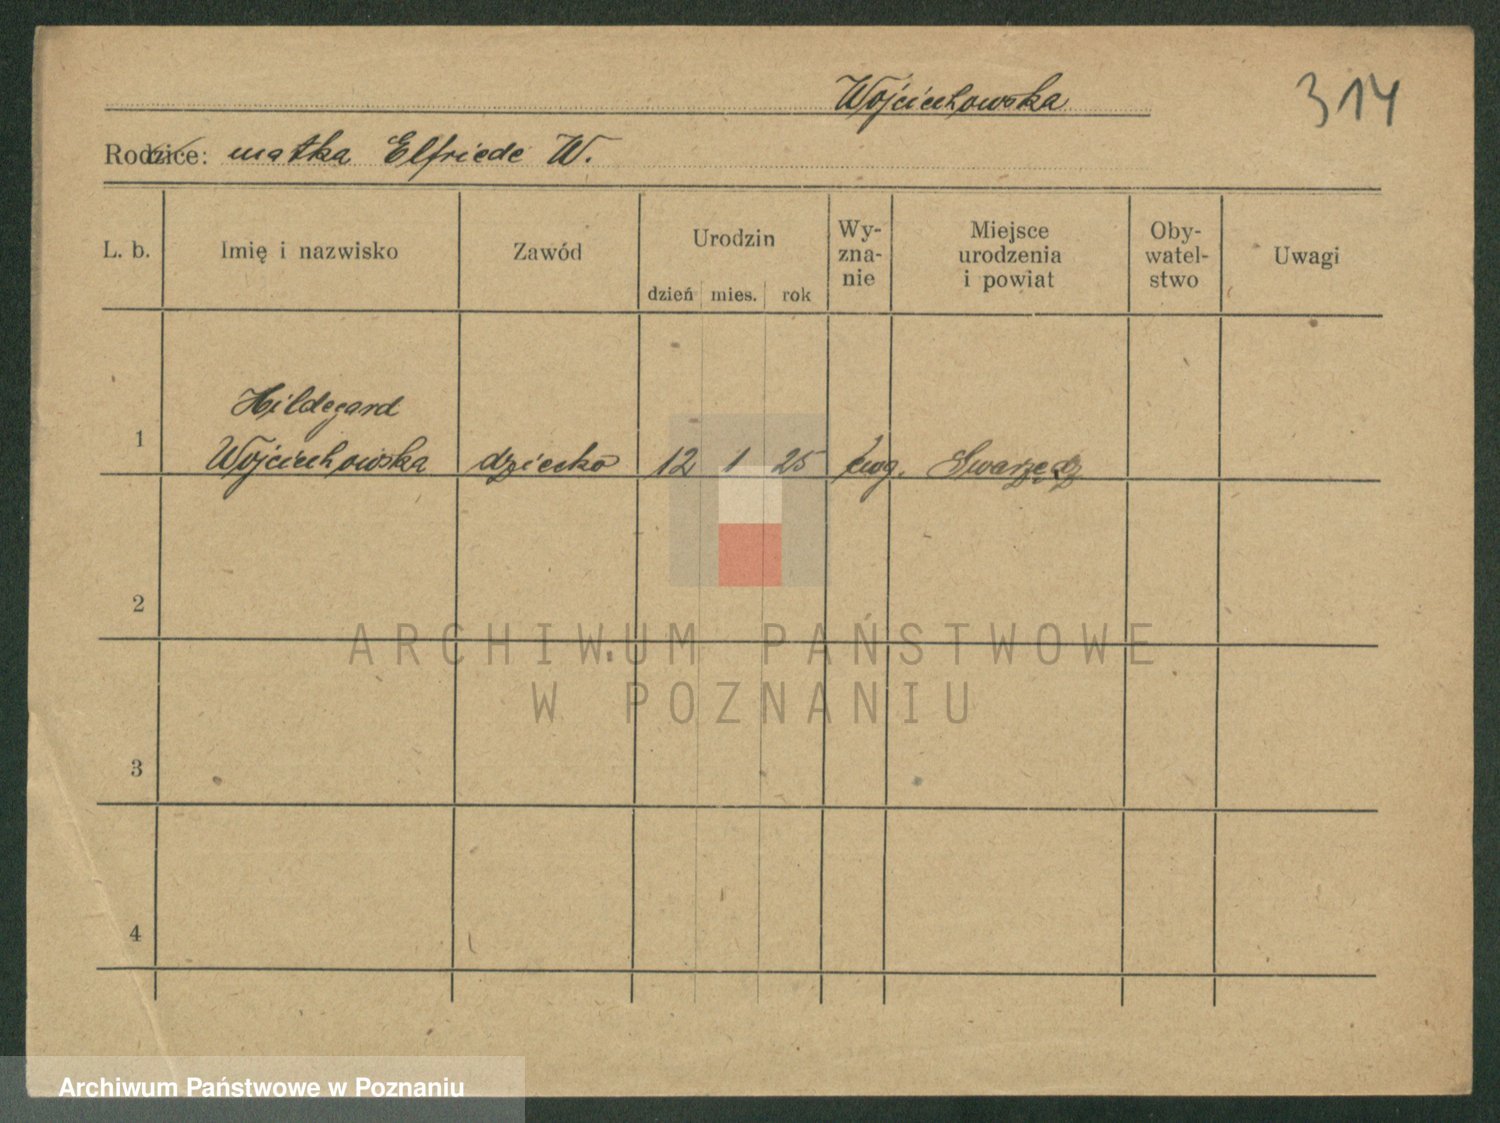 Wojciechowska
314
Rodzice: matka Elfriede W.
L. b.
Imię i nazwisko
Zawód
Urodzin
dzień mies. rok
Wy-
zna-
nie
Miejsce
urodzenia
i powiat
Oby-
watel-
stwo
Uwagi
Hildegard
1 Wojciechowska dziecko 12 1 25 ewg. Swarzędz
2
3
4
ARCHIWUM PAŃSTWOWE
W POZNANIU
Archiwum Państwowe w Poznaniu